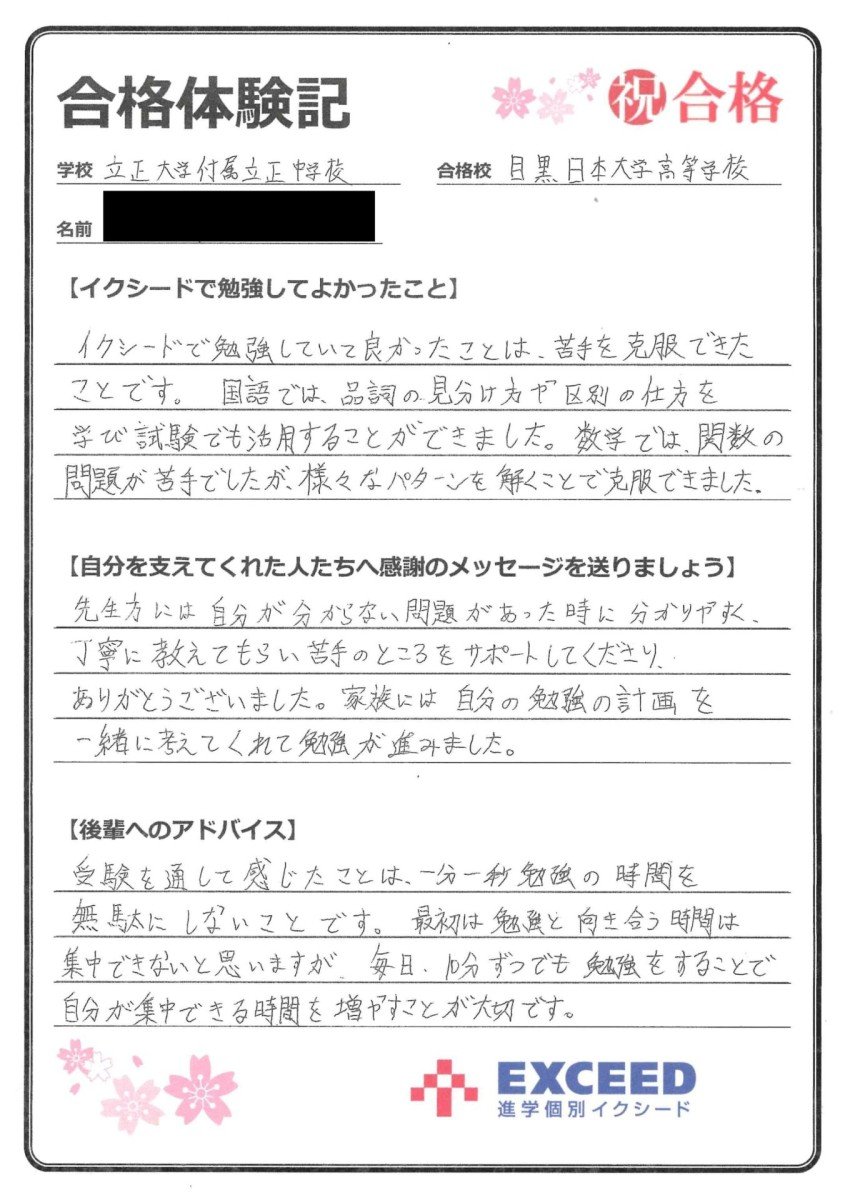 合格体験記
祝 合格
学校 立正大学付属立正中学校
合格校 目黒日本大学高等学校
名前
【イクシードで勉強してよかったこと】
イクシードで勉強していて良かったことは、苦手を克服できた
ことです。 国語では、品詞の見分け方や区別の仕方を
学び試験でも活用することができました。数学では、関数の
問題が苦手でしたが、様々なパターンを解くことで克服できました。
【自分を支えてくれた人たちへ感謝のメッセージを送りましょう】
先生方には自分が分からない問題があった時に分かりやすく、
丁寧に教えてもらい苦手のところをサポートしてくださり、
ありがとうございました。家族には自分の勉強の計画を
一緒に考えてくれて勉強が進みました。
【後輩へのアドバイス】
受験を通して感じたことは、一分一秒勉強の時間を
無駄にしないことです。最初は勉強と向き合う時間は
集中できないと思いますが、毎日、10分ずつでも勉強をすることで
自分が集中できる時間を増やすことが大切です。
EXCEED
進学個別イクシード